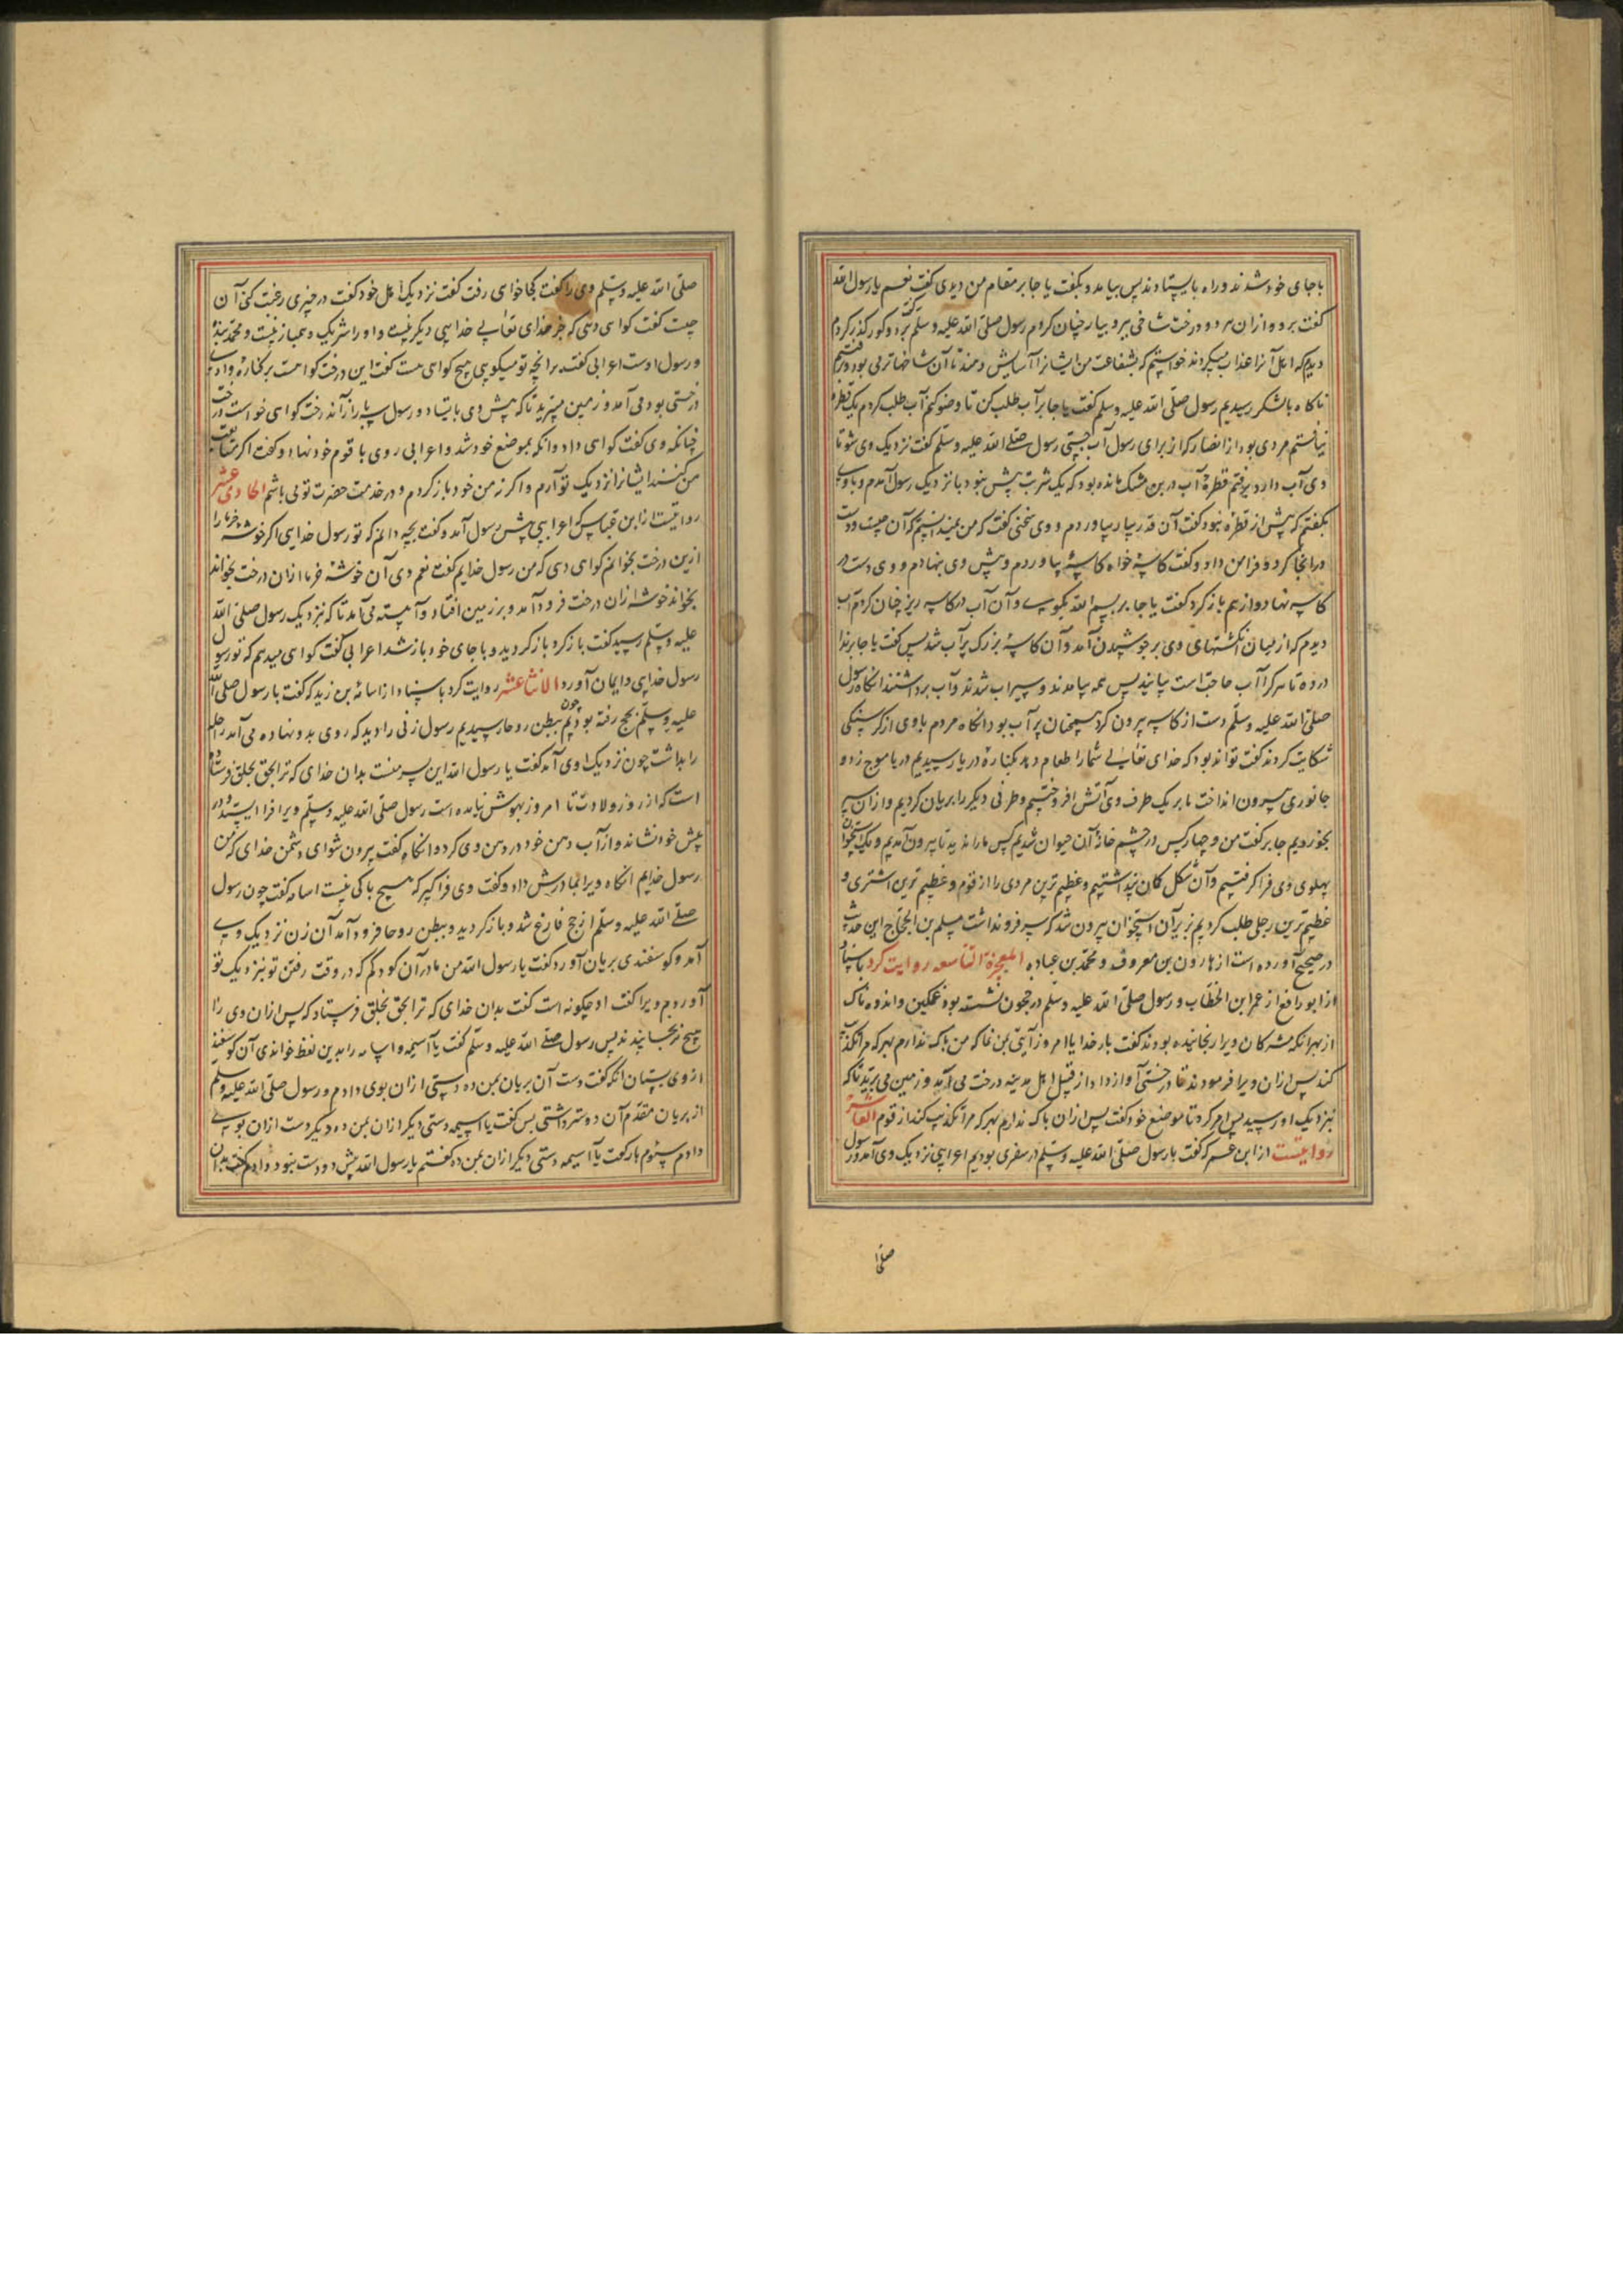 با جای خود شدند و راه بایستادند پس بیامد و بگفت یا جابر مقام من دیدی گفت نعم یا رسول الله
گفت برو و از ان هر دو درخت شاخی ببر و بیار چنان کردم رسول صلی الله علیه وسلم بر دو گور گذر کردم
دیدم که اهل آنرا عذاب میکردند خواستیم که بشفاعت من ایشانرا آسایش دهند تا آن شاخها تر می بود
ناکاه بلشکر رسیدیم رسول صلی الله علیه وسلم گفت یا جابر آب طلب کن تا وضو کنم آب طلب کردم یک قطره
نیافتم مردی بود از انصار که از برای رسول آب جستی رسول صلی الله علیه وسلم گفت نزدیک وی شو تا
وی آب دارد برفتم قطرۀ آب در بن مشک مانده بود که یک شربت پیش نبود باز نزدیک رسول آمدم و با وی
بگفتم که پیش از قطره نبود گفت آن قدر بیار بیاوردم و وی سخنی گفت که من نمیدانستم که آن چیست و دست
در انجا کرد و فرا من داد و گفت کاسۀ خواه کاسۀ بیاوردم و پیش وی بنهادم و وی دست در
کاسه نهاد و از هم باز کرد گفت یا جابر بسم الله بگوی و آن آب در کاسه ریز چنان کردم آب
دیدم که از میان انگشتهای وی بر جوشیدن آمد و آن کاسۀ بزرک پر آب شد پس گفت یا جابر ندا
در ده تا هر کرا آب حاجت است بیایند پس همه بیامدند و سیراب شدند و آب برداشتند انکاه رسول
صلی الله علیه وسلم دست از کاسه بیرون کرد همچنان پر آب بود انکاه مردم با وی از کرسنکی
شکایت کردند گفت تواند بود که خدای تعالی شما را طعام دهد بکنارۀ دریا رسیدیم دریا موج زد و
جانوری بیرون انداخت ما بر یک طرف وی آتش افروختیم و طرفی دیکر را بریان کردیم و از ان سیر
بخوردیم جابر گفت من و چهار کس در چشم خانۀ آن حیوان شدیم کس ما را ندید تا بیرون آمدیم و یک استخوان
پهلوی وی فرا کرفتیم و آن شکل کمان پنداشتیم و عظیم ترین مردی را از قوم و عظیم ترین اشتری و
عظیم ترین رحلی طلب کردیم بزیر آن استخوان بیرون شد که سر فرو نداشت مسلم بن الحجاج این حدیث
در صحیح آورده است از هارون بن معروف و محمد بن عباد المعجزة التاسعه روایت کرد باسناد
از ابو رافع از عمر ابن الخطاب و رسول صلی الله علیه وسلم در حجون نشسته بود غمکین و اندوه ناک
از بهر انکه مشرکان ویرا رنجانیده بودند گفت بار خدایا امروز آیتی بمن نما که من باک ندارم بهر که مرا تکذیب
کند پس از ان ویرا فرمودند تا درختی آواز داد از قبل اهل مدینه درخت می آمد و زمین می برید تا که
بنزدیک او رسید پس امر کرد تا موضع خود گفت پس از ان باک ندارم بهر که مرا تکذیب کند از قوم العاشر
روایتست از ابن عمر که گفت با رسول صلی الله علیه وسلم در سفری بودیم اعرابیی نزدیک وی آمد و رسول
صلی ا
صلی الله علیه وسلم وی را گفت کجا خواهی رفت گفت نزدیک اهل خود گفت در چیزی رغبت کنی آن
چیست گفت کواهی دهی که جز خدای تعالی خدایی دیکر نیست و او را شریک و همباز نیست و محمد بندۀ
و رسول اوست اعرابی گفت بر انچه تو میکویی هیچ کواهی هست گفت این درخت کواهست بر کنارۀ وادی
درختی بود می آمد و زمین میبرید تا که پیش وی بایستاد و رسول سه بار از آن درخت کواهی خواست درخت
چنانکه وی گفت کواهی داد و انکه بموضع خود شد و اعرابی روی با قوم خود نهاد و گفت اکر متابعت
من کنند ایشانرا نزدیک تو آرم و اکر نه من خود باز کردم و در خدمت حضرت تو می باشم الحادی عشر
روایتست از ابن عباس که اعرابیی پیش رسول آمد و گفت بچه دانم که تو رسول خدایی اکر خوشۀ خرما را
ازین درخت بخوانم کواهی دهی که من رسول خدایم گفت نعم وی آن خوشۀ خرما از ان درخت بخواند
بخواند خوشه از ان درخت فرود آمد و بر زمین افتاد و آهسته می آمد تا که نزدیک رسول صلی الله
علیه وسلم رسید گفت باز کرد باز کردید و با جای خود باز شد اعرابی گفت کواهی میدهم که تو رسول
رسول خدایی و ایمان آورد الاثنا عشر روایت کرد باسناد از اسامه بن زید که گفت با رسول صلی الله
علیه وسلم بحج رفته بودیم چون ببطن روحا رسیدیم رسول زنی را دید که روی بدو نهاده می آمد راحله
را بداشت چون نزدیک وی آمد گفت یا رسول الله این پسر منست بدان خدای که ترا بحق بخلق فرستاده
است که از روز ولادت تا امروز بهوش نیامده است رسول صلی الله علیه وسلم ویرا فرا ایستد و در
پیش خود نشاند و از آب دهن خود در دهن وی کرد و انکاه گفت بیرون شو ای دشمن خدای که من
رسول خدایم انکاه ویرا بمادرش داد و گفت وی فرا کیر که هیچ باکی نیست اسامه گفت چون رسول
صلی الله علیه وسلم از حج فارغ شد و باز کردید و ببطن روحا فرود آمد آن زن نزدیک وی
آمد و کوسفندی بریان آورد گفت یا رسول الله من مادر آن کودکم که در وقت رفتن تو بنزدیک تو
آوردم ویرا گفت او چکونه است گفت بدان خدای که ترا بحق بخلق فرستاد که پس از ان وی را
هیچ نرنجانیدند پس رسول صلی الله علیه وسلم گفت یا اسیمه و اسامه را بدین لفظ خواندی آن کوسفند
از وی بستان انکه گفت دست آن بریان بمن ده دستی از ان بوی دادم و رسول صلی الله علیه وسلم
از بریان مقدم آن دوستر داشتی پس گفت یا اسیمه دستی دیکر از ان بمن ده دیکر دست از ان بوی
دادم سئوم بار گفت یا اسیمه دستی دیکر از ان بمن ده گفتم یا رسول الله پیش دو دست نبود و دادم گفت بدان